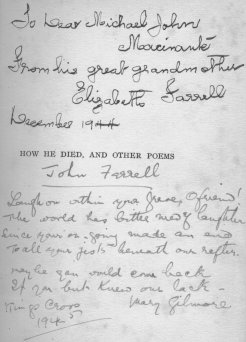 To Dear Michael John
Marcinanté
From his great grandmother
Elizabeth Farrell
December 1944
HOW HE DIED, AND OTHER POEMS
John Farrell
Laugh on within your grave, O friend,
The world has bitter need of laughter
Since your on-going made an end
To all your jests beneath our rafter.
maybe you would come back
If you but knew our lack -
Mary Gilmore
King's Cross
1945